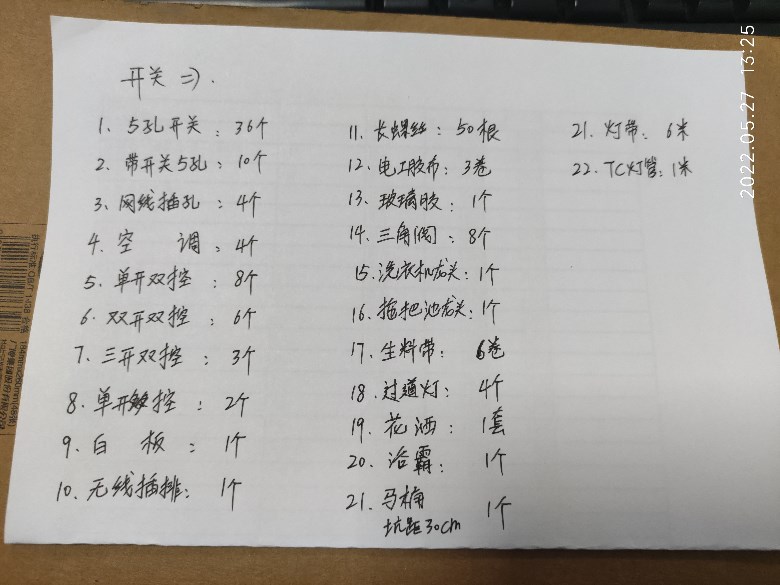 开关 =).
1. 5孔开关: 36个
2. 带开关5孔: 10个
3. 网线插孔: 4个
4. 空 调: 4个
5. 单开双控: 8个
6. 双开双控: 6个
7. 三开双控: 3个
8. 单开触控: 2个
9. 白 板: 1个
10. 无线插排: 1个
11. 长螺丝: 50根
12. 电工胶布: 3卷
13. 玻璃胶: 1个
14. 三角阀: 8个
15. 洗衣机龙头: 1个
16. 拖把池龙头: 1个
17. 生料带: 6卷
18. 过道灯: 4个
19. 花洒: 1套
20. 浴霸: 1个
21. 马桶 1个
坑距30cm
21. 灯带: 6米
22. TC灯管: 1米
2022.05.27 13:25